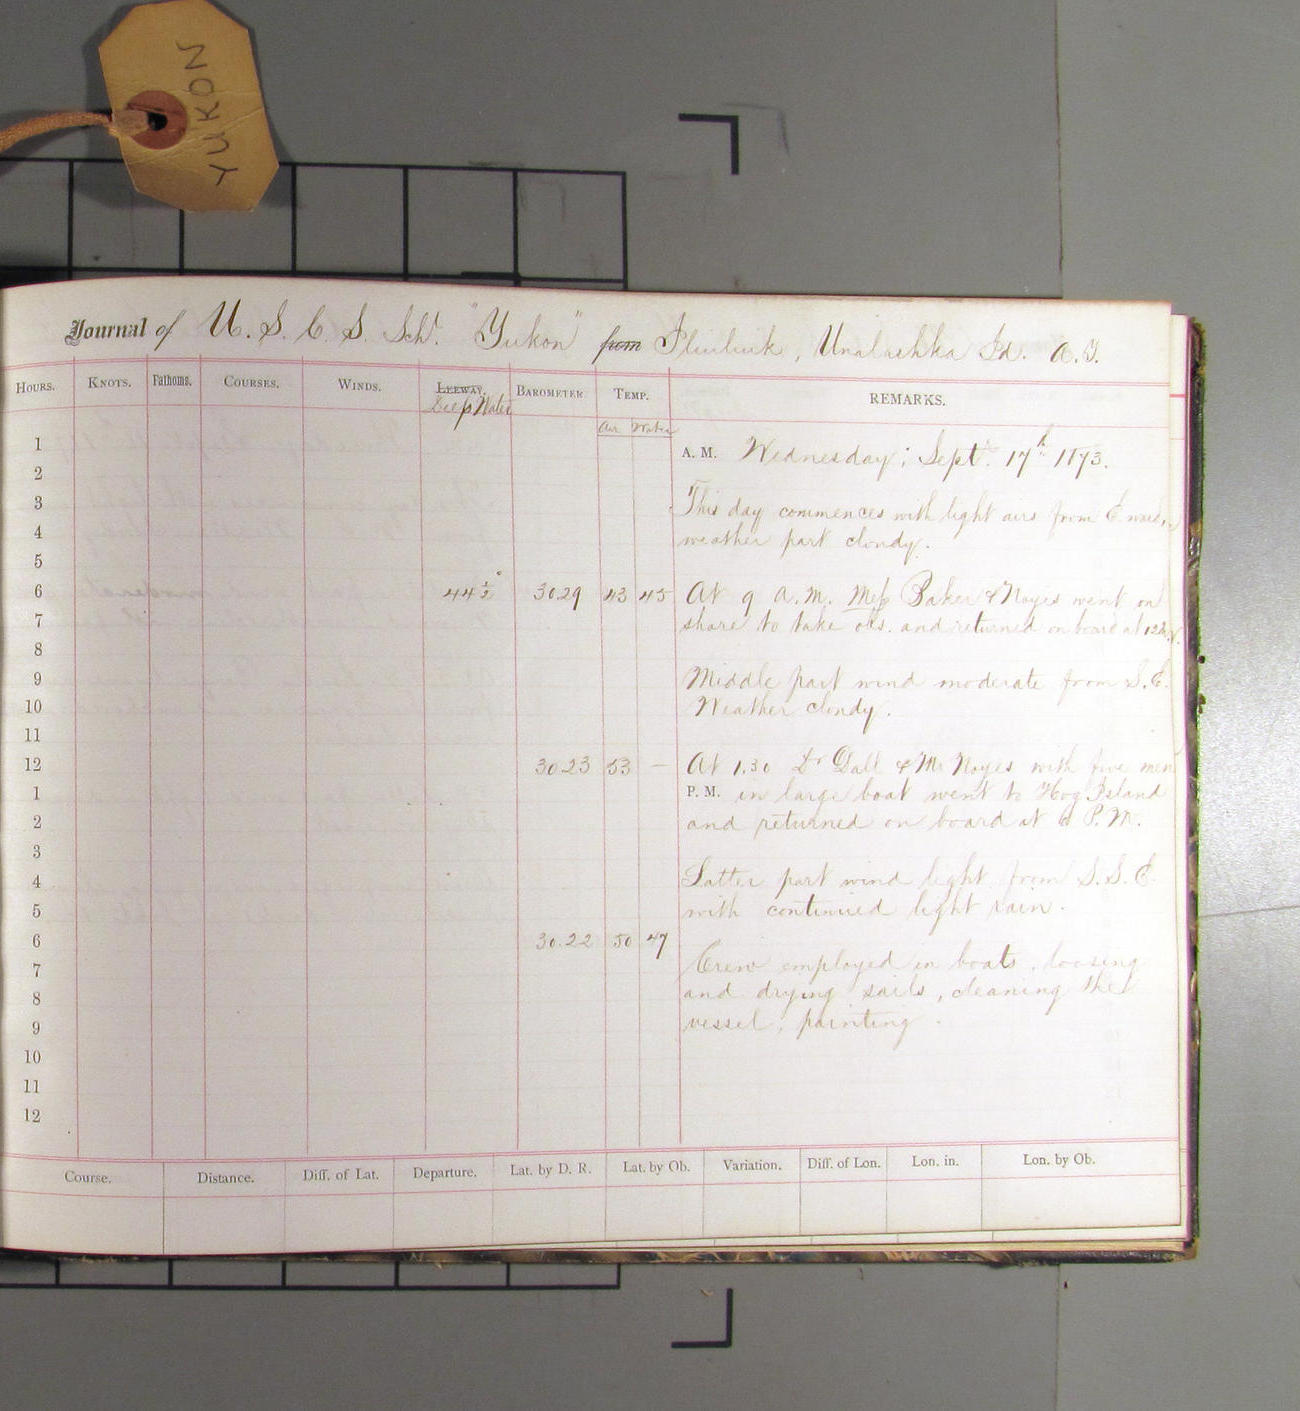 YUKON
Journal of U. S. C. S. Schr. "Yukon" from Iliuliuk, Unalashka Id. A.T.
HOURS. KNOTS. Fathoms. COURSES. WINDS. LEEWAY. BAROMETER. TEMP. REMARKS.
Deep Water
Air Water
1 A. M. Wednesday; Sept. 17th 1873.
2
3 This day commences with light airs from E ward,
4 weather part cloudy.
5
6 44½° 30.29 43 45 At 9 A.M. Mess Baker & Noyes went on
7 shore to take obs. and returned on board at 12h
8
9 Middle part wind moderate from S.E.
10 Weather cloudy.
11
12 30.23 53 — At 1.30 Dr Dall & Mr Noyes with five men
1 P. M. in large boat went to Hog Island
2 and returned on board at 6 P.M.
3
4 Latter part wind light from S.S.E.
5 with continued light rain.
6 30.22 50 47
7 Crew employed in boats, loosing
8 and drying sails, cleaning the
9 vessel, painting.
10
11
12
Course. Distance. Diff. of Lat. Departure. Lat. by D. R. Lat. by Ob. Variation. Diff. of Lon. Lon. in. Lon. by Ob.